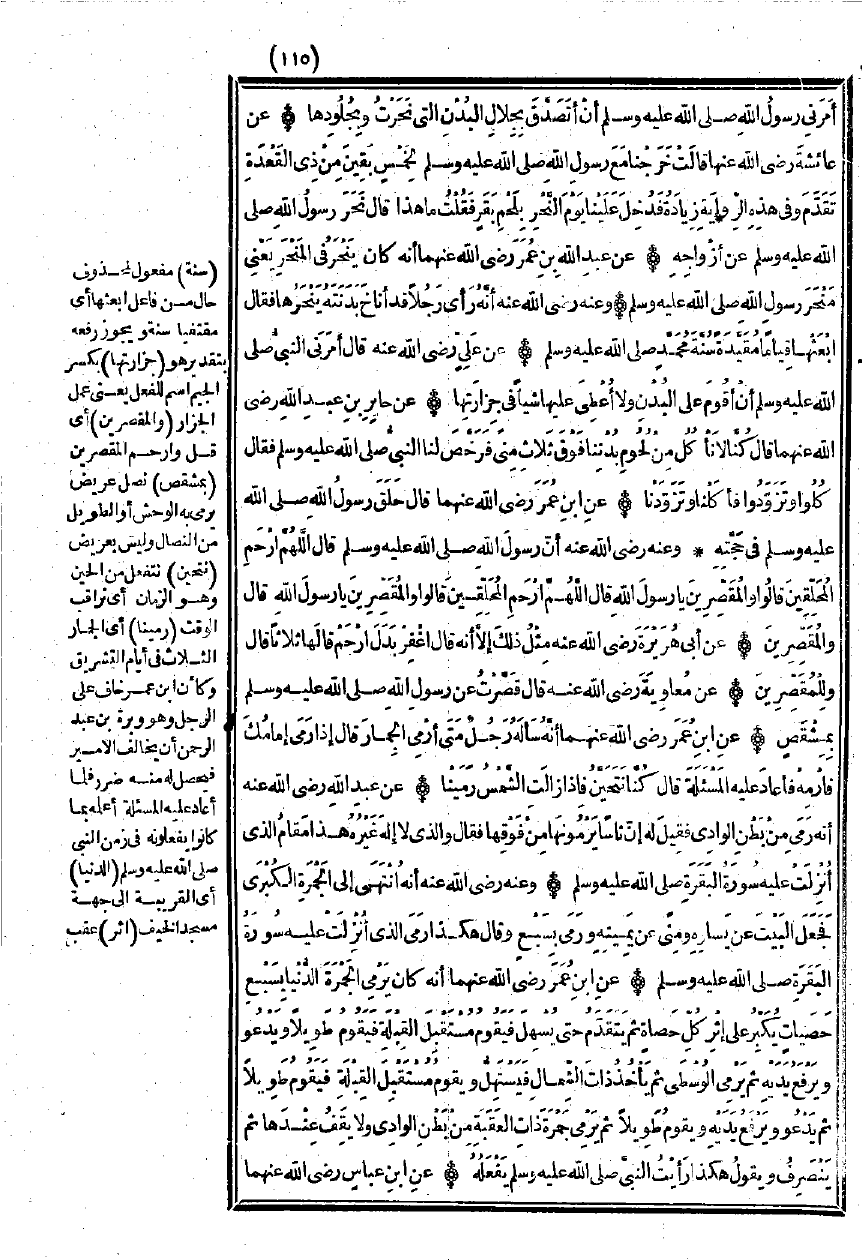 (١١٥)
أَمَرَنِي رسولُ الله صلى الله عليه وسلم أنْ أتَصَدَّقَ بِجِلالِ البُدْنِ التي نَحَرْتُ وبِجُلُودِها ۞ عن
عائشةَ رضى الله عنها قالَتْ خَرَجْنا مَعَ رسولِ الله صلى الله عليه وسلم لِخَمْسٍ بَقِينَ مِنْ ذِى القَعْدَةِ
تَقَدَّمَ وفى هذه الرِّوايةِ زِيادَةُ فَدُخِلَ عَلَيْنا يَوْمَ النَّحْرِ بِلَحْمِ بَقَرٍ فَقُلْتُ ما هذا قال نَحَرَ رسولُ الله صلى
الله عليه وسلم عن أزْواجِهِ ۞ عن عبدِ الله بنِ عُمَرَ رضى الله عنهما أنه كان يَنْحَرُ فى المَنْحَرِ يَعْنِى
مَنْحَرَ رسولِ الله صلى الله عليه وسلم ۞ وعنه رضى الله عنه أنَّه رَأى رَجُلاً قد أناخَ بَدَنَتَه يَنْحَرُها فقال
ابْعَثْها قِياماً مُقَيَّدَةً سُنَّةَ مُحَمَّدٍ صلى الله عليه وسلم ۞ عن عَلِيٍّ رضى الله عنه قال أمَرَنِى النبىُّ صلى
الله عليه وسلم أنْ أقُومَ على البُدْنِ ولا أُعْطِىَ عليها شيأً فى جِزارَتِها ۞ عن جابِرِ بنِ عبدِ الله رضى
الله عنهما قال كُنَّا لا نَأْكُلُ مِنْ لُحُومِ بُدْنِنا فَوْقَ ثَلاثِ مِنًى فَرَخَّصَ لنا النبىُّ صلى الله عليه وسلم فقال
كُلُوا وتَزَوَّدُوا فأكَلْنا وتَزَوَّدْنا ۞ عنِ ابنِ عُمَرَ رضى الله عنهما قال حَلَقَ رسولُ الله صلى الله
عليه وسلم فى حَجَّتِهِ * وعنه رضى الله عنه أنّ رسولَ الله صلى الله عليه وسلم قال اللَّهُمَّ ارْحَمِ
المُحَلِّقِينَ قالُوا والمُقَصِّرِينَ يا رسولَ الله قال اللَّهُمَّ ارْحَمِ المُحَلِّقِينَ قالُوا والمُقَصِّرِينَ يا رسولَ الله قال
والمُقَصِّرِينَ ۞ عن أبى هُرَيْرَةَ رضى الله عنه مِثْلُ ذلكَ إلاَّ أنه قال اغْفِرْ بَدَلَ ارْحَمْ قالَها ثلاثاً قال
ولِلْمُقَصِّرِينَ ۞ عن مُعاوِيةَ رضى الله عنه قال قَصَّرْتُ عن رسولِ الله صلى الله عليه وسلم
بِمِشْقَصٍ ۞ عنِ ابنِ عُمَرَ رضى الله عنهما أنَّهُ سَألَهُ رَجُلٌ مَتَى أَرْمِى الجِمارَ قال إذا رَمَى إمامُكَ
فارْمِهْ فأعادَ عليه المَسْئلةَ قال كُنَّا نَتَحَيَّنُ فاذا زالَتِ الشَّمْسُ رَمَيْنا ۞ عن عبدِ الله رضى الله عنه
أنه رَمَى مِنْ بَطْنِ الوادِى فقيلَ له إنّ ناساً يَرْمُونَها مِنْ فَوْقِها فقال والذى لا إلهَ غَيْرُهُ هذا مَقامُ الذى
أُنْزِلَتْ عليه سُورَةُ البَقَرَةِ صلى الله عليه وسلم ۞ وعنه رضى الله عنه أنه انْتَهَى إلى الجَمْرَةِ الكُبْرَى
فجَعَلَ البَيْتَ عن يَسارِهِ ومِنًى عن يَمِينِهِ ورَمَى بِسَبْعٍ وقال هكذا رَمَى الذى أُنْزِلَتْ عليه سُورةُ
البَقَرَةِ صلى الله عليه وسلم ۞ عنِ ابنِ عُمَرَ رضى الله عنهما أنه كان يَرْمِى الجَمْرَةَ الدُّنْيا بِسَبْعِ
حَصَياتٍ يُكَبِّرُ على إثْرِ كُلِّ حَصاةٍ ثم يَتَقَدَّمُ حتى يُسْهِلَ فيقومُ مُستقبِلَ القِبْلةِ فيقومُ طَوِيلاً ويَدْعُو
ويَرْفَعُ يديهِ ثم يَرْمِى الوُسْطَى ثم يَأْخُذُ ذاتَ الشِّمالِ فيَسْتَهِلُّ ويقومُ مُسْتَقْبِلَ القِبْلَةِ فيَقُومُ طَوِيلاً
ثم يَدْعُو ويَرْفَعُ يَدَيْهِ ويَقُومُ طَوِيلاً ثم يَرْمِى جَمْرَةَ ذاتِ العَقَبةِ مِنْ بَطْنِ الوادِى ولا يَقِفُ عِنْدَها ثم
يَنْصَرِفُ ويقولُ هكذا رَأيْتُ النبىَّ صلى الله عليه وسلم يَفْعَلُهُ ۞ عنِ ابنِ عباسٍ رضى الله عنهما
(سنة) مفعول لمحذوف
حال من فاعل ابعثها أى
مقتفيا سنة ويجوز رفعه
بتقديرهو (جزارتها) بكسر
الجيم اسم للفعل يعنى عمل
الجزار (والمقصرين) أى
قل وارحم المقصرين
(بمشقص) نصل عريض
يرمى به الوحش أو الطويل
من النصال وليس بعريض
(نتحين) نتفعل من الحين
وهو الزمان أى نراقب
الوقت (رمينا) أى الجار
الثلاث فى أيام التشريق
وكأن ابن عمر خاف على
الرجل وهو وبرة بن عبد
الرحمن أن يخالف الامير
فيحصل له منه ضرر فلما
أعاد عليه المسئلة أعله بما
كانوا يفعلونه فى زمن النبى
صلى الله عليه وسلم (الدنيا)
أى القريبة الى جهة
مسجد الخيف (اثر) عقب